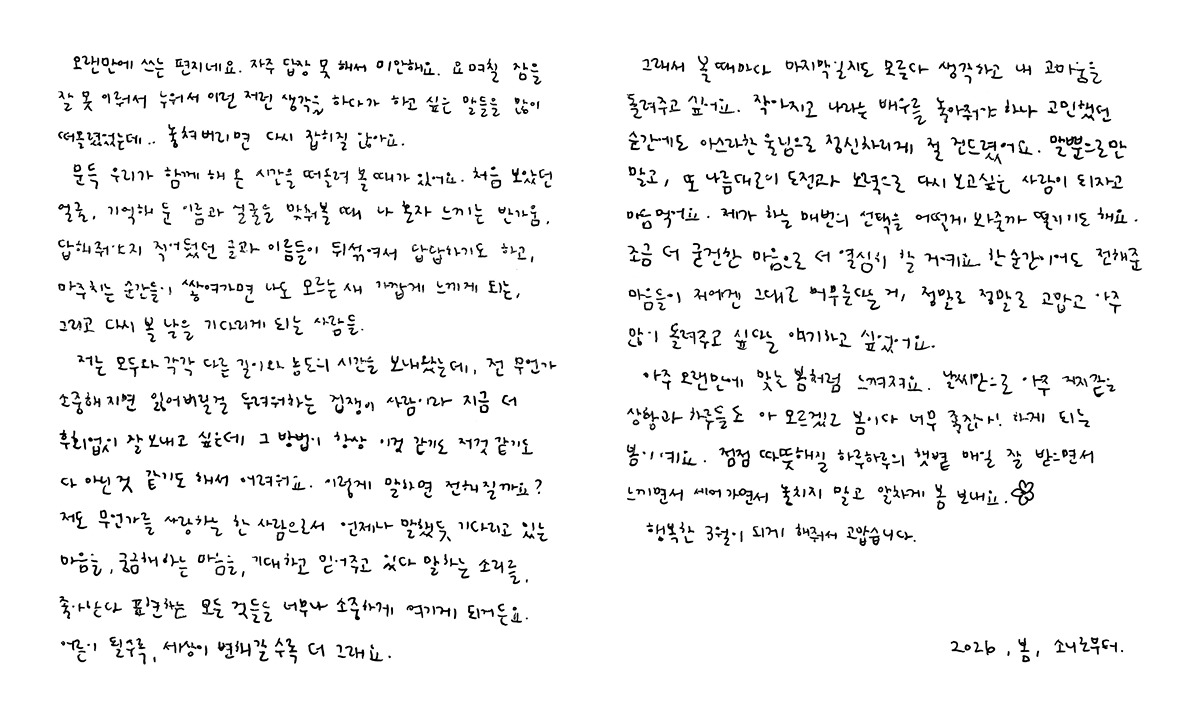 오랜만에 쓰는 편지네요. 자주 답장 못 해서 미안해요. 요 며칠 잠을
잘 못 이뤄서 누워서 이런 저런 생각을 하다가 하고 싶은 말들을 많이
떠올렸었는데.. 놓쳐버리면 다시 잡히질 않아요.
문득 우리가 함께 해 온 시간을 떠올려 볼 때가 있어요. 처음 보았던
얼굴, 기억해 둔 이름과 얼굴을 맞춰볼 때 나 혼자 느끼는 반가움,
답해줘야지 적어뒀던 글과 이름들이 뒤섞여서 답답하기도 하고,
마주치는 순간들이 쌓여가면 나도 모르는 새 가깝게 느끼게 되는,
그리고 다시 볼 날을 기다리게 되는 사람들.
저는 모두와 각각 다른 길이와 농도의 시간을 보내왔는데, 전 무언가
소중해지면 잃어버릴걸 두려워하는 겁쟁이 사람이라 지금 더
후회없이 잘 보내고 싶은데 그 방법이 항상 이것 같기도 저것 같기도
다 아닌 것 같기도 해서 어려워요. 이렇게 말하면 전해질까요?
저도 무언가를 사랑하는 한 사람으로서 언제나 말했듯 기다리고 있는
마음들, 궁금해하는 마음들, 기대하고 믿어주고 있다 말하는 소리들,
좋아한다 표현하는 모든 것들을 너무나 소중하게 여기게 되거든요.
어른이 될수록, 세상이 변해갈 수록 더 그래요.
그래서 볼 때마다 마지막일지도 모른다 생각하고 내 고마움을
돌려주고 싶어요. 작아지고 나라는 배우를 놓아줘야 하나 고민했던
순간에도 아스라한 울림으로 정신차리게 절 건드렸어요. 말뿐으로만
말고, 또 나름대로의 도전과 노력으로 다시 보고싶은 사람이 되자고
마음먹어요. 제가 하는 매번의 선택을 어떻게 봐줄까 떨기기도 해요.
조금 더 굳건한 마음으로 더 열심히 할 거예요. 한순간이어도 전해준
마음들이 저에겐 그대로 머무른다는 거, 정말로 정말로 고맙고 아주
많이 돌려주고 싶다는 얘기하고 싶었어요.
아주 오랜만에 맞는 봄처럼 느껴져요. 날씨만으로 아주 거지같은
상황과 하루들도 아 모르겠고 봄이다 너무 좋잖아! 하게 되는
봄이예요. 점점 따뜻해질 하루하루의 햇볕 매일 잘 받으면서
느끼면서 세어가면서 놓치지 말고 알차게 봄 보내요.
행복한 3월이 되게 해줘서 고맙습니다.
2026, 봄, 소니로부터.